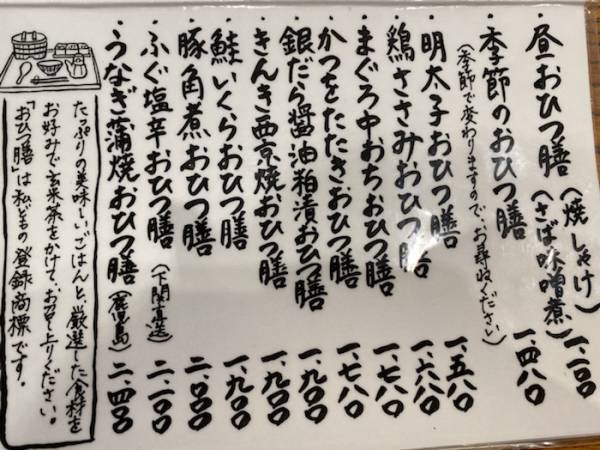 ・昼おひつ膳（焼しゃけ）
（さば味噌煮）一、二〇〇
・季節のおひつ膳 一、四八〇
（季節で変わりますので、お尋ねください）
・明太子おひつ膳 一、五八〇
・鶏ささみおひつ膳 一、六八〇
・まぐろ中おちおひつ膳 一、七八〇
・かつをたたきおひつ膳 一、七八〇
・銀だら醤油粕漬おひつ膳 一、九〇〇
・きんき西京焼おひつ膳 一、九〇〇
・鮭いくらおひつ膳 一、九〇〇
・豚角煮おひつ膳 二、〇〇〇
・ふぐ塩辛おひつ膳（下関直送）二、一〇〇
・うなぎ蒲焼おひつ膳（鹿児島）二、四〇〇
たっぷりの美味しいごはんと、厳選した食材を
お好みで玄米茶をかけて、お召し上りください。
「おひつ膳」は私どもの登録商標です。